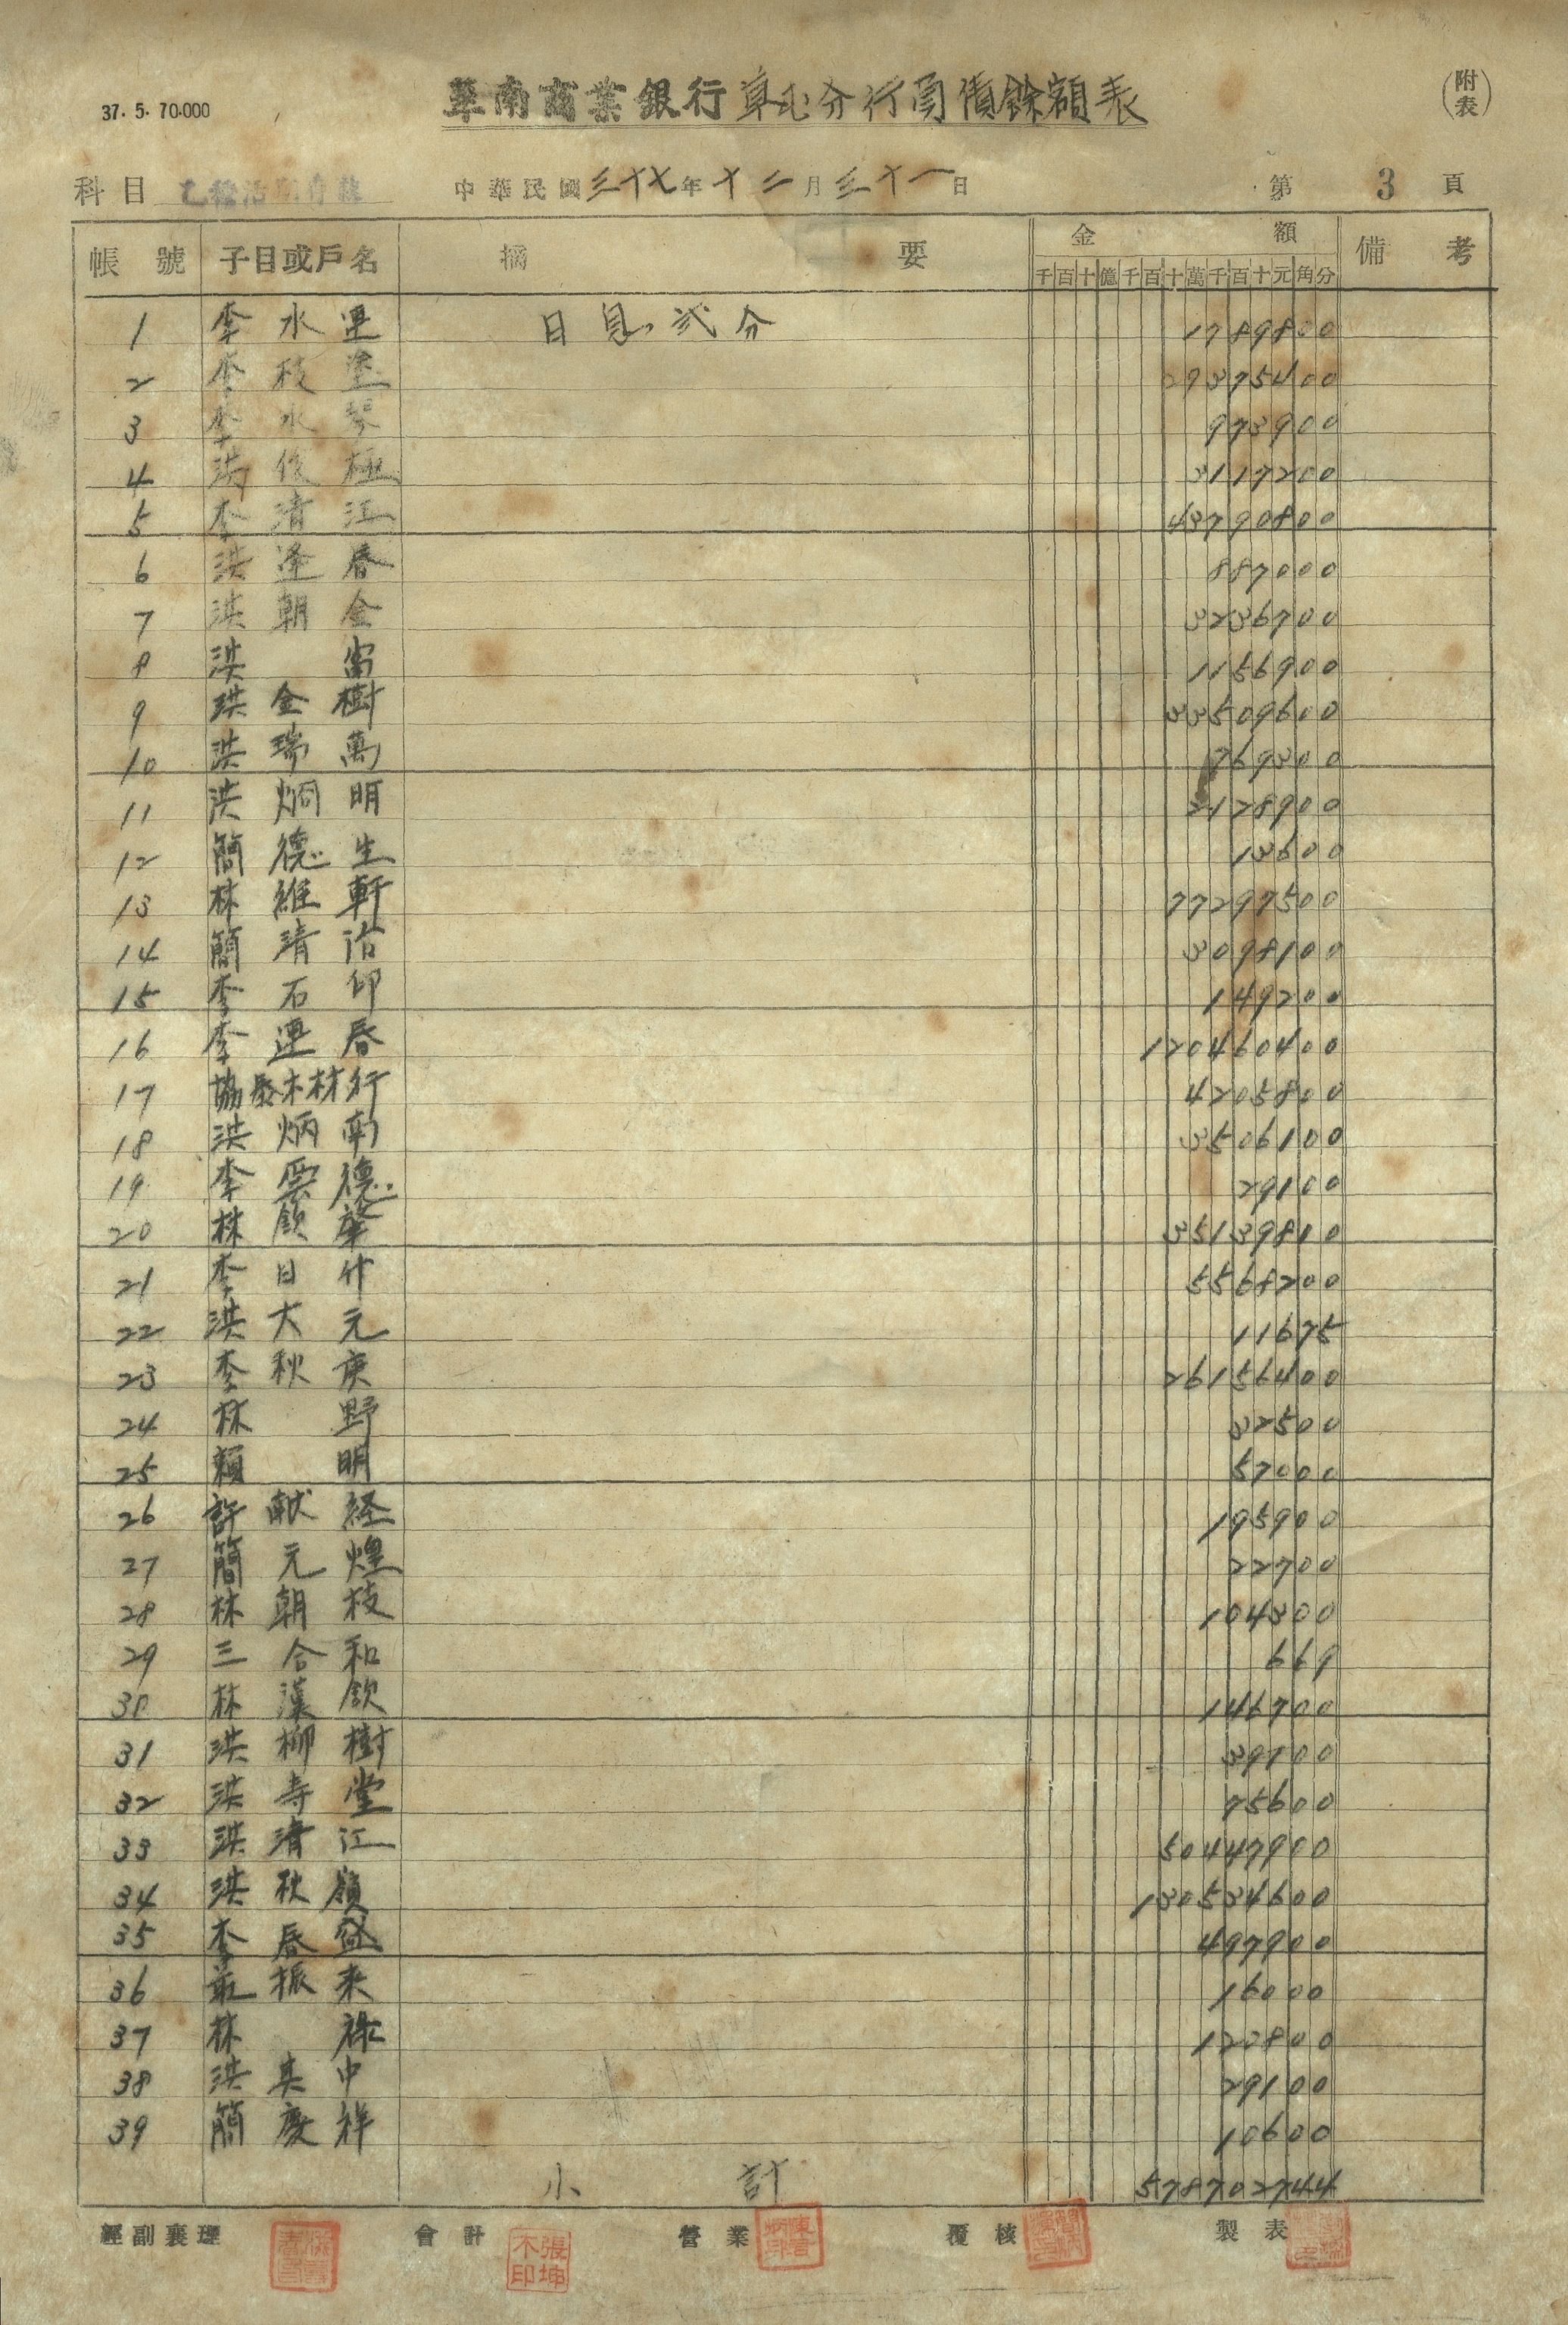 37. 5. 70.000
華南商業銀行草屯分行負債餘額表
(附表)
科目 乙種活期存款
中華民國三十七年十二月三十一日
第 3 頁
帳號 子目或戶名 摘要 金額 備考
千百十億千百十萬千百十元角分
1 李水運 日息貳分 1789800
2 李枝塗 29375400
3 李水琴 973900
4 洪俊極 3117200
5 李清江 43790800
6 洪逢春 887000
7 洪朝金 3236700
8 洪當 1156900
9 洪金樹 33509600
10 洪瑞萬 769300
11 洪炯明 2128900
12 簡德生 13600
13 林維軒 77297500
14 簡清治 3098100
15 李石印 149200
16 李運春 120460400
17 協泰木材行 4205800
18 洪炳南 3506100
19 李雲德 29100
20 林欽肇 35139810
21 李日什 5568200
22 洪大元 11675
23 李秋庚 26156400
24 林野 32500
25 賴明 57000
26 許献経 195900
27 簡元煌 22700
28 林朝枝 104300
29 三合和 669
30 林漢欽 146700
31 洪柳樹 39100
32 洪寺堂 75600
33 洪清江 50447900
34 洪秋嶺 130534600
35 李春盛 497900
36 振来 16000
37 林祿 120800
38 洪其中 29100
39 簡慶祥 10600
小計 578702744
經副襄理 會計 營業 覆核 製表
張坤
不印